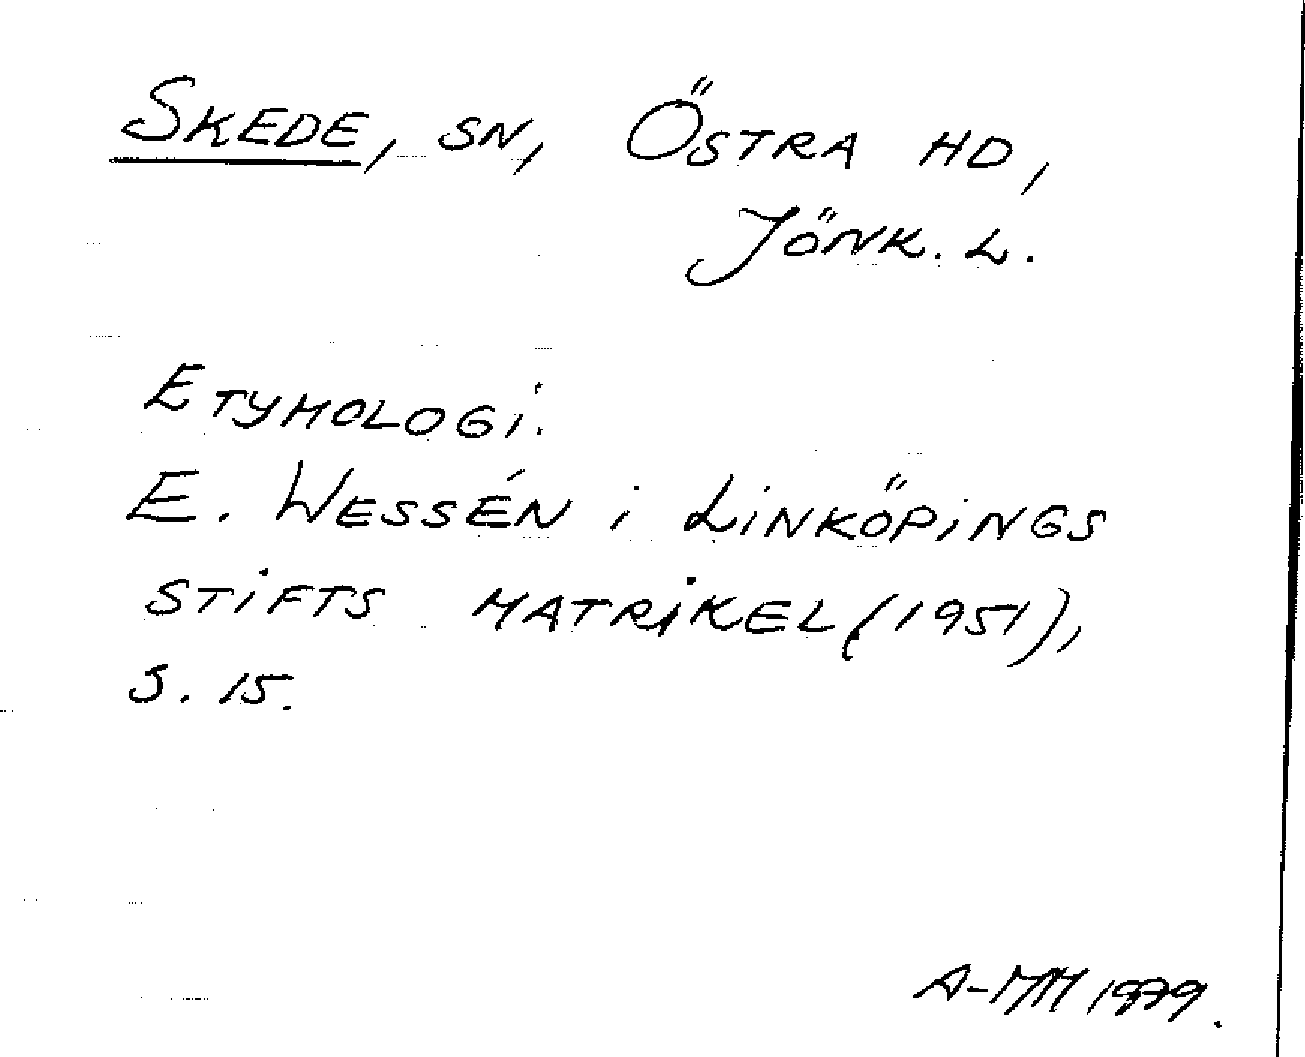 SKEDE, SN, ÖSTRA HD,
JÖNK. L.
ETYMOLOGI.
E. WESSÉN i LINKÖPINGS
STIFTS MATRIKEL (1951),
S. 15.
A-MM 1979.